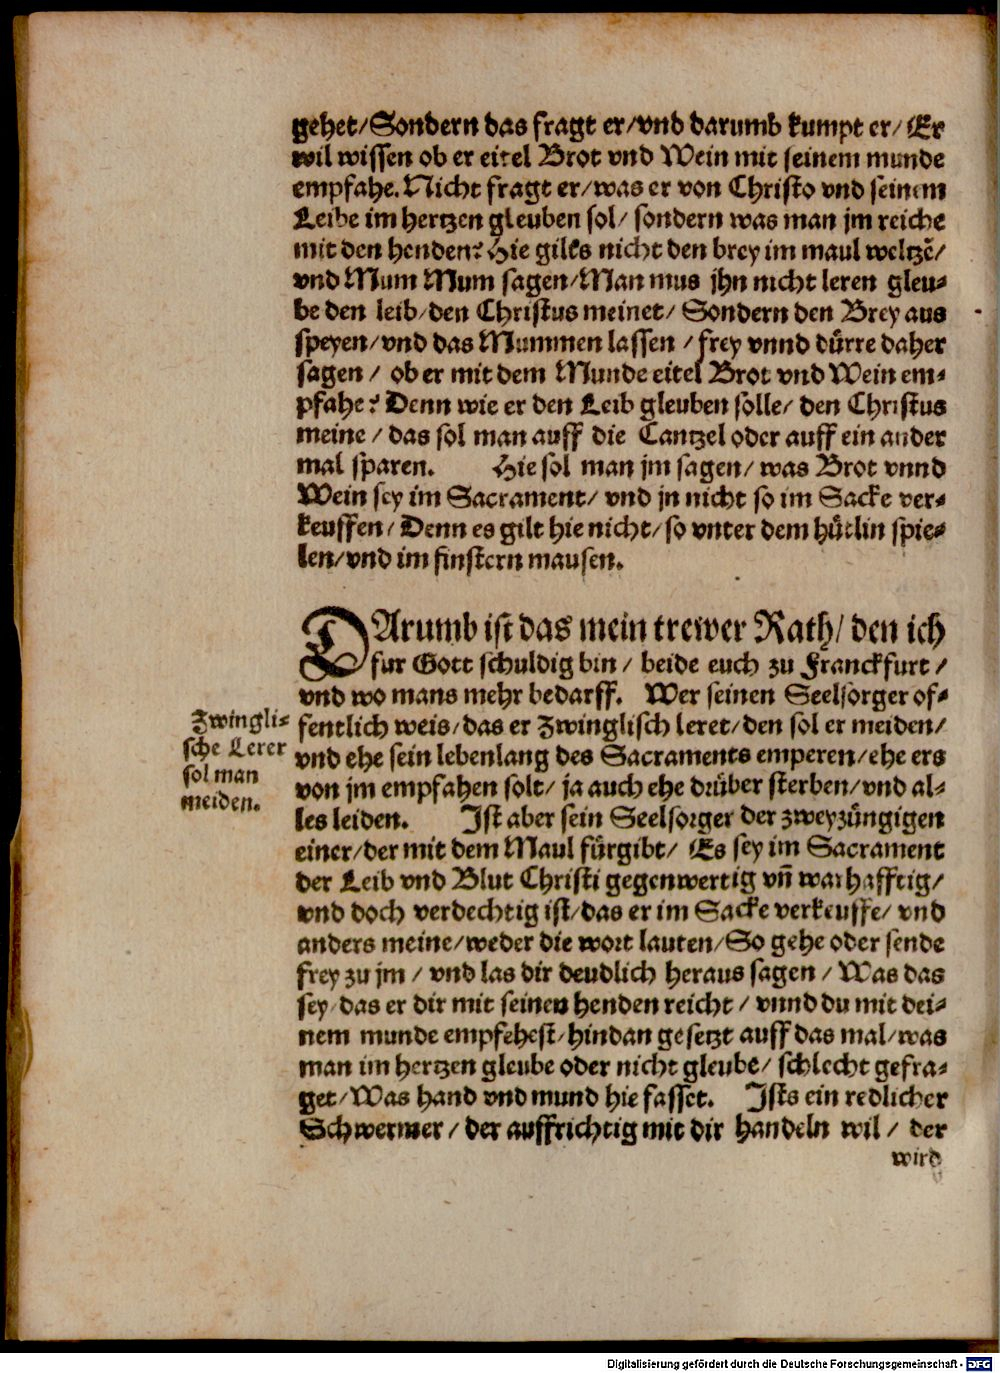 gehet/Sondern das fragt er/vnd darumb kumpt er/ Er
wil wissen ob er eitel Brot vnd Wein mit seinem munde
empfahe. Nicht fragt er/was er von Christo vnd seinem
Leibe im hertzen gleuben sol/ sondern was man jm reiche
mit den henden? Hie gilts nicht den brey im maul weltzē/
vnd Mum Mum sagen/Man mus jhn nicht leren gleu-
be den leib/den Christus meinet/ Sondern den Brey aus
speyen/vnd das Mummen lassen / frey vnnd dürre daher
sagen / ob er mit dem Munde eitel Brot vnd Wein em-
pfahe? Denn wie er den Leib gleuben solle/ den Christus
meine / das sol man auff die Cantzel oder auff ein ander
mal sparen. Hie sol man jm sagen/ was Brot vnnd
Wein sey im Sacrament/ vnd jn nicht so im Sacke ver-
keuffen/ Denn es gilt hie nicht/so vnter dem hütlin spie-
len/vnd im finstern mausen.
DArumb ist das mein trewer Rath/ den ich
fur Gott schuldig bin / beide euch zu Franckfurt /
vnd wo mans mehr bedarff. Wer seinen Seelsorger of-
fentlich weis/das er Zwinglisch leret/den sol er meiden/
vnd ehe sein lebenlang des Sacraments emperen/ehe ers
von jm empfahen solt/ ja auch ehe drüber sterben/vnd al-
les leiden. Ist aber sein Seelsorger der zweyzüngigen
einer/der mit dem Maul fürgibt/ Es sey im Sacrament
der Leib vnd Blut Christi gegenwertig vn̄ warhafftig/
vnd doch verdechtig ist/das er im Sacke verkeuffe/ vnd
anders meine/weder die wort lauten/So gehe oder sende
frey zu jm / vnd las dir deudlich heraus sagen / Was das
sey/das er dir mit seinen henden reicht / vnnd du mit dei-
nem munde empfehest/hindan gesetzt auff das mal/was
man im hertzen gleube oder nicht gleube/ schlecht gefra-
get/Was hand vnd mund hie fasset. Ists ein redlicher
Schwermer / der auffrichtig mit dir handeln wil / der
wird
Zwingli-
sche Lerer
sol man
meiden.
Digitalisierung gefördert durch die Deutsche Forschungsgemeinschaft - DFG